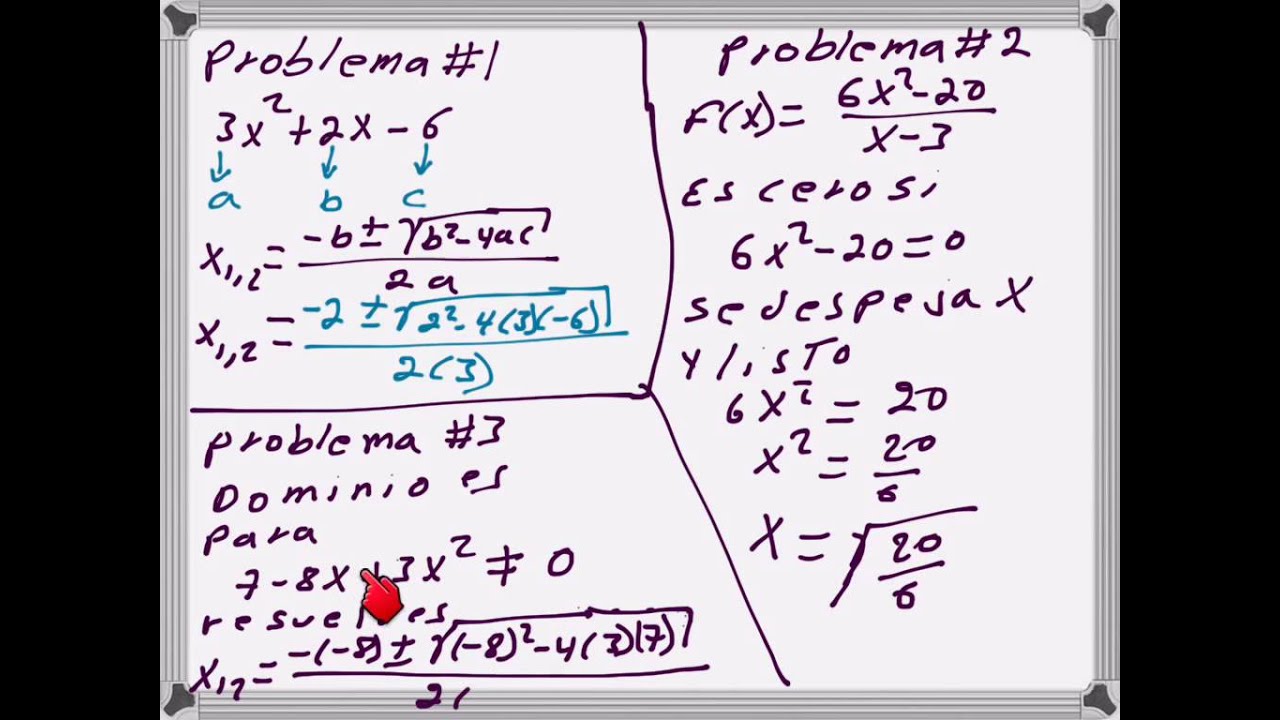 Problema #1
3x²+2x-6
a b c
x₁,₂ = -b ± √b²-4ac / 2a
x₁,₂ = -2 ± √2²-4(3)(-6) / 2(3)
Problema #2
F(x) = 6x²-20 / x-3
Es cero si
6x²-20=0
se despesa X
y listo
6x² = 20
x² = 20/6
X = √20/6
Problema #3
Dominio es
para
7-8x+3x² ≠ 0
x₁,₂ = -(-8) ± √(-8)²-4(3)(7) / 2(